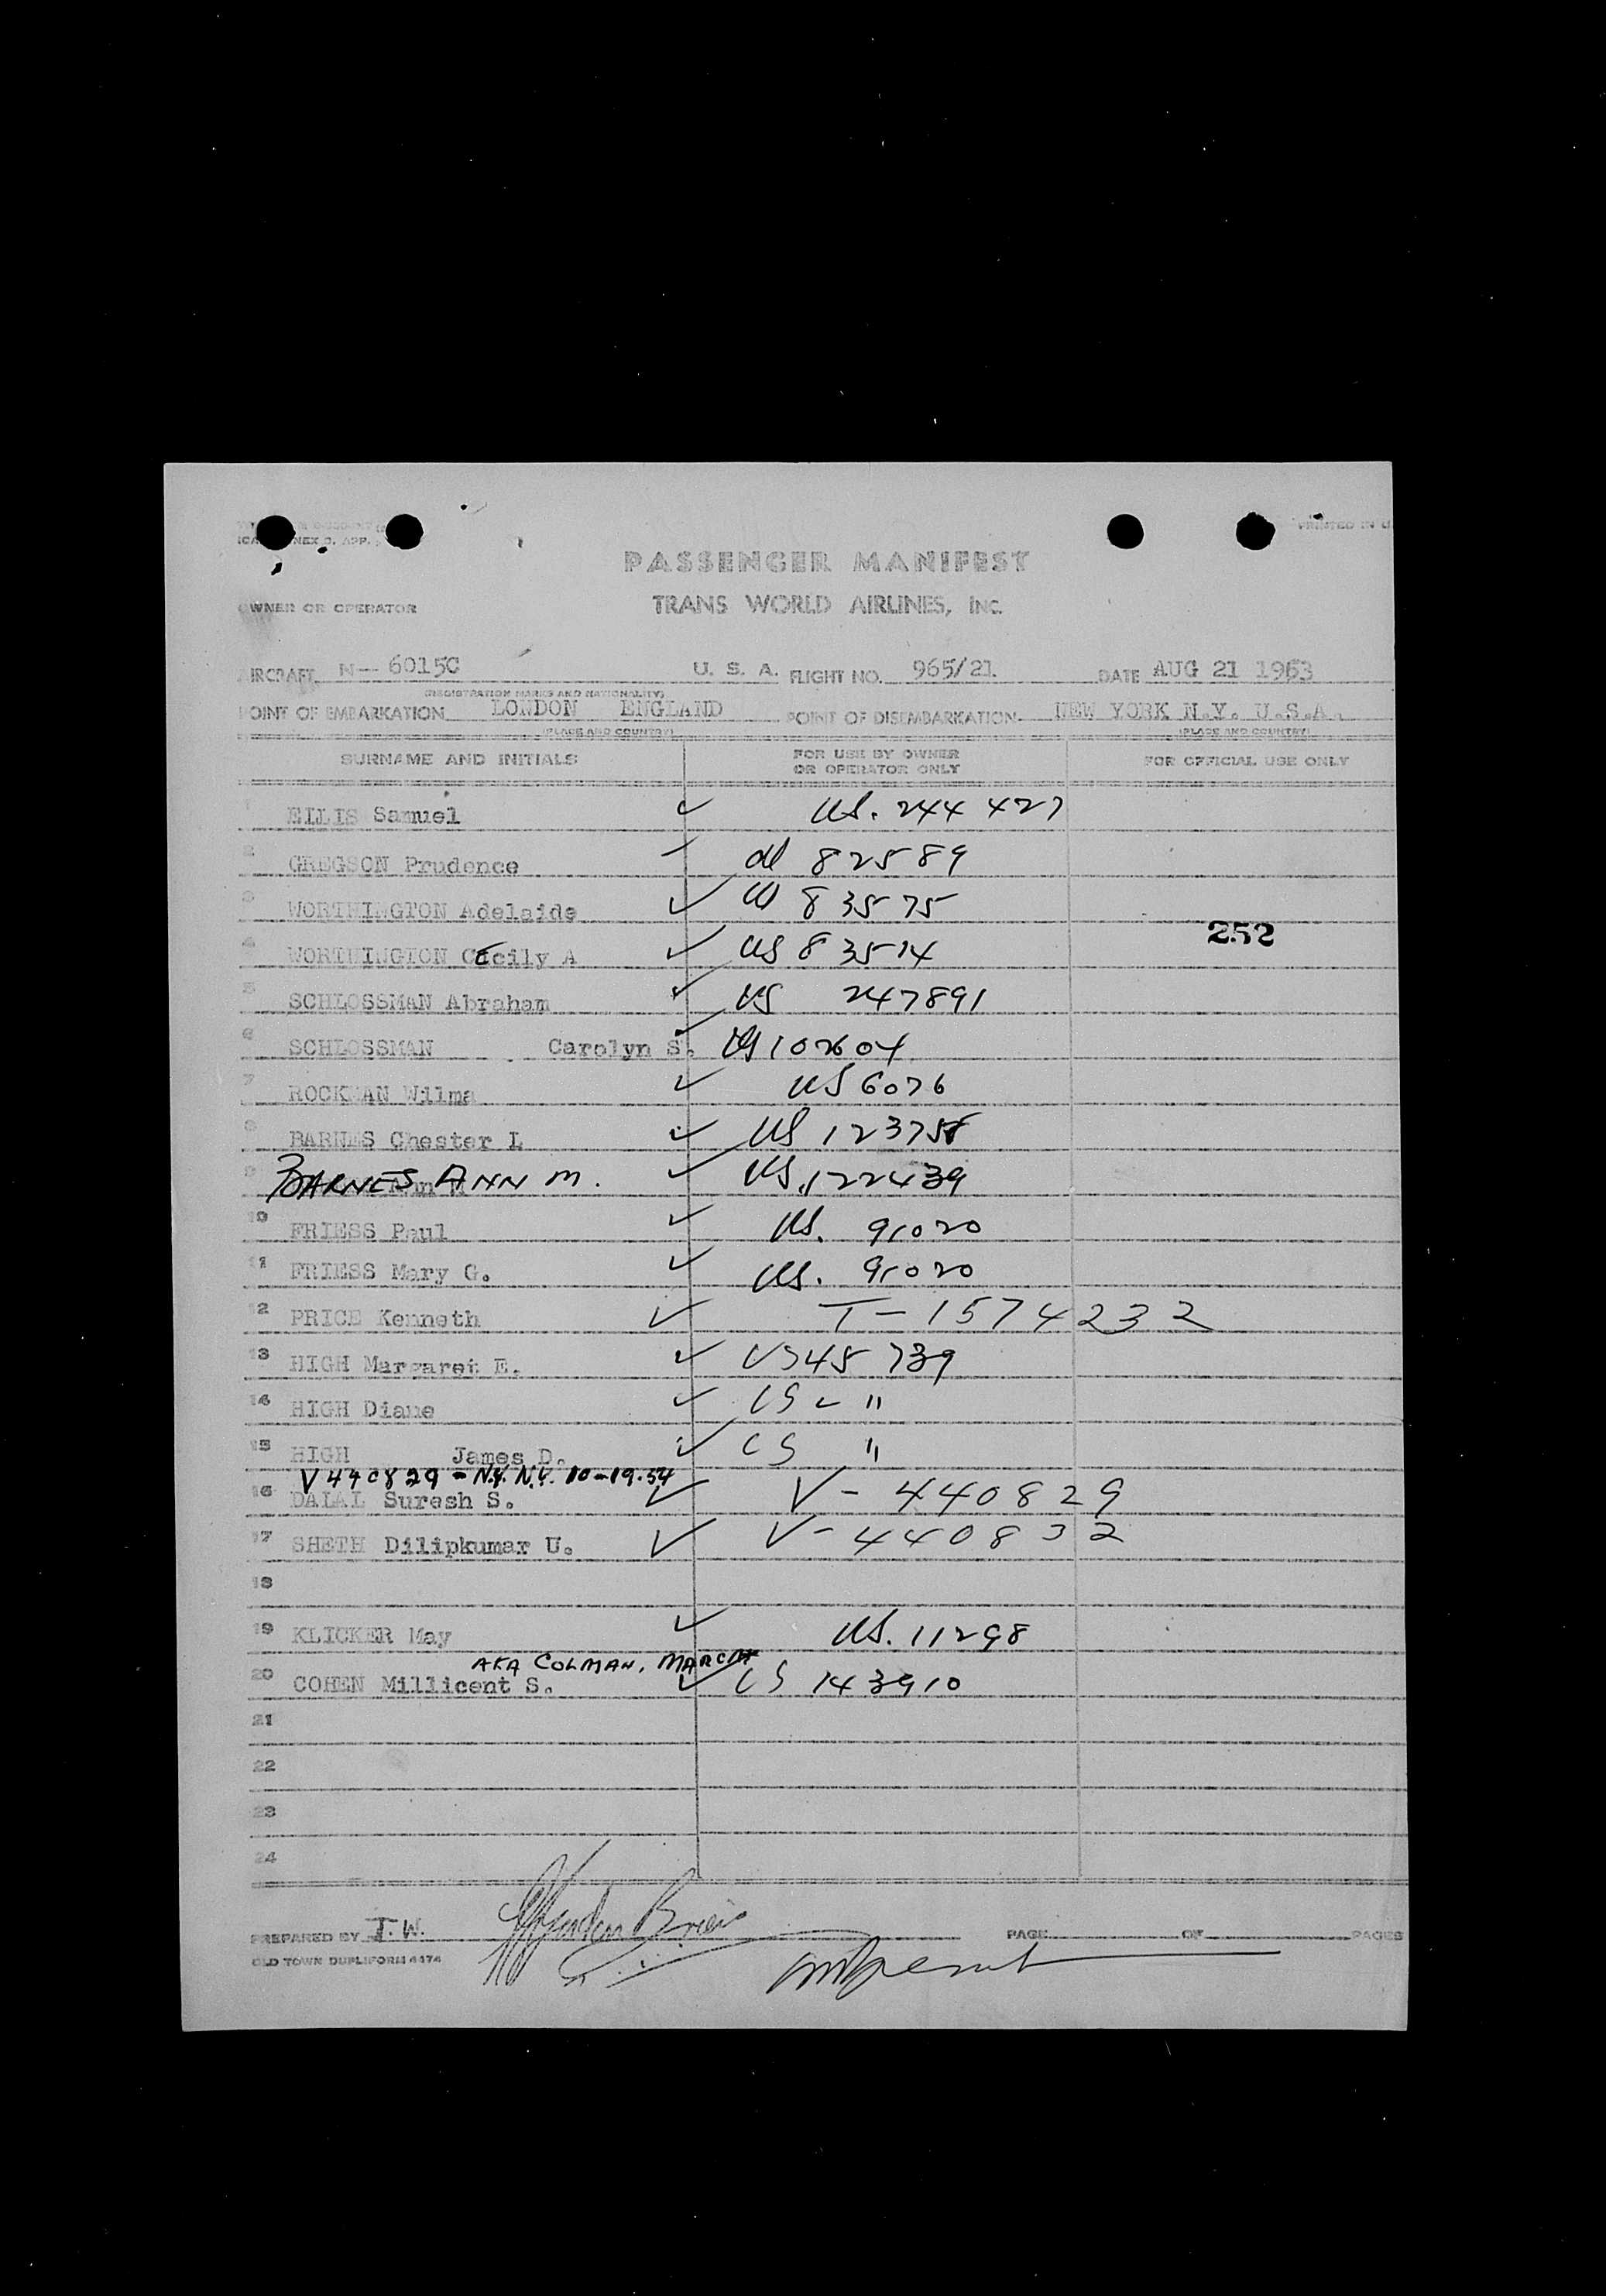 PRINTED IN U.
NEX 9. APP.
PASSENGER MANIFEST
OWNER OR OPERATOR TRANS WORLD AIRLINES, INC.
AIRCRAFT N- 6015C U. S. A. FLIGHT NO. 965/21 DATE AUG 21 1963
(REGISTRATION MARKS AND NATIONALITY)
POINT OF EMBARKATION LONDON ENGLAND POINT OF DISEMBARKATION NEW YORK N.Y. U.S.A.
(PLACE AND COUNTRY) (PLACE AND COUNTRY)
SURNAME AND INITIALS FOR USE BY OWNER OR OPERATOR ONLY FOR OFFICIAL USE ONLY
1 ELLIS Samuel ✓ US. 244 427
2 GREGSON Prudence 82589
3 WORTHINGTON Adelaide ✓ 83575
252
4 WORTHINGTON CEcily A ✓ US 83514
5 SCHLOSSMAN Abraham ✓ US 247891
6 SCHLOSSMAN Carolyn S. ✓ US 102604
7 ROCKMAN Wilma ✓ US 6076
8 BARNES Chester L ✓ US 123758
9 BARNES ANN M. ✓ US. 122439
10 FRIESS Paul ✓ US. 91020
11 FRIESS Mary G. ✓ US. 91020
12 PRICE Kenneth ✓ T-1574232
13 HIGH Margaret E. ✓ US 45 739
14 HIGH Diane ✓ US "
15 HIGH James D. ✓ US "
V 440829 - N.Y. N.Y. 10-19-54
16 DALAL Suresh S. ✓ V-440829
17 SHETH Dilipkumar U. ✓ V-440832
18
19 KLICKER May ✓ US. 11298
AKA COLMAN, MARCIA
20 COHEN Millicent S. ✓ US 143910
21
22
23
24
PREPARED BY T.W. PAGE OF PAGES
OLD TOWN DUPLIFORM 4474